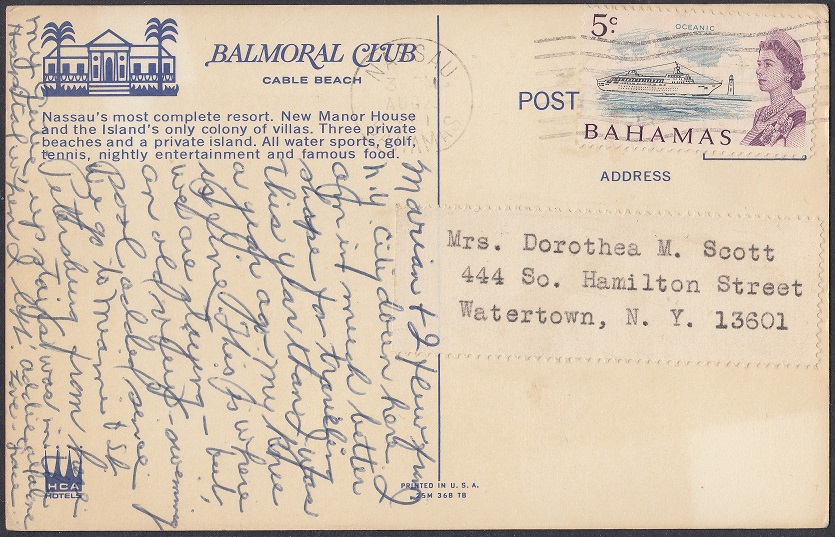 BALMORAL CLUB
CABLE BEACH
Nassau's most complete resort. New Manor House
and the Island's only colony of villas. Three private
beaches and a private island. All water sports, golf,
tennis, nightly entertainment and famous food.
Marian & I flew from
N.Y. City down here
am in much better
shape for traveling
this year than I was
a year ago - my knee
is fine. This is where
we are staying - but
an old swimming
pool added since
We go to Miami & St.
Petersburg from here
my
up stairs was in
hospital when I left
Love
HCA
HOTELS
NASSAU
AUG
BAHAMAS
5c
OCEANIC
BAHAMAS
POST
ADDRESS
Mrs. Dorothea M. Scott
444 So. Hamilton Street
Watertown, N. Y. 13601
PRINTED IN U. S. A.
25M 368 TB